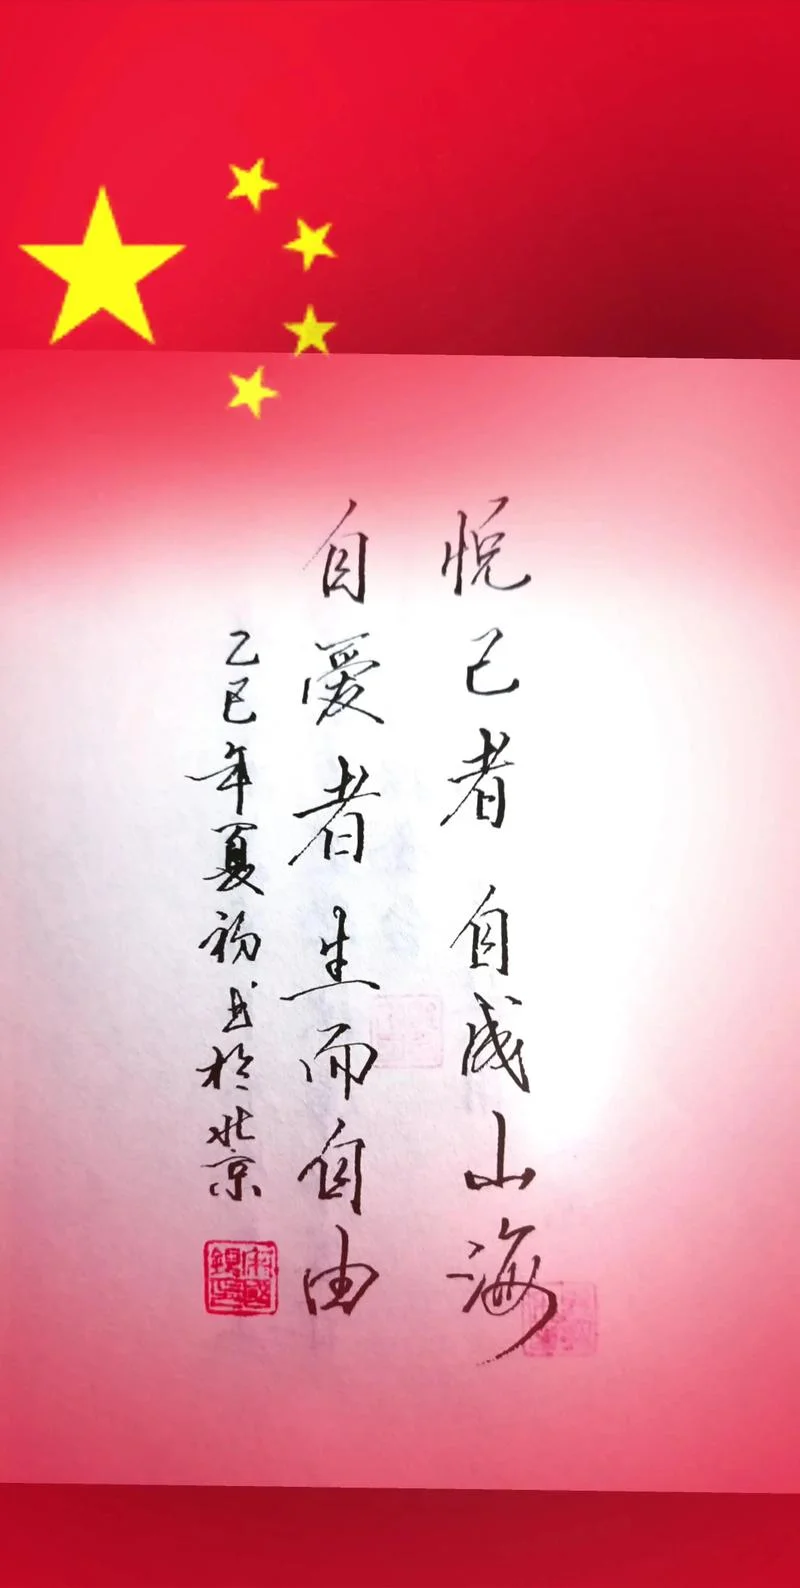 悦己者自成山海
自愛者生而自由
乙巳年夏初书於北京